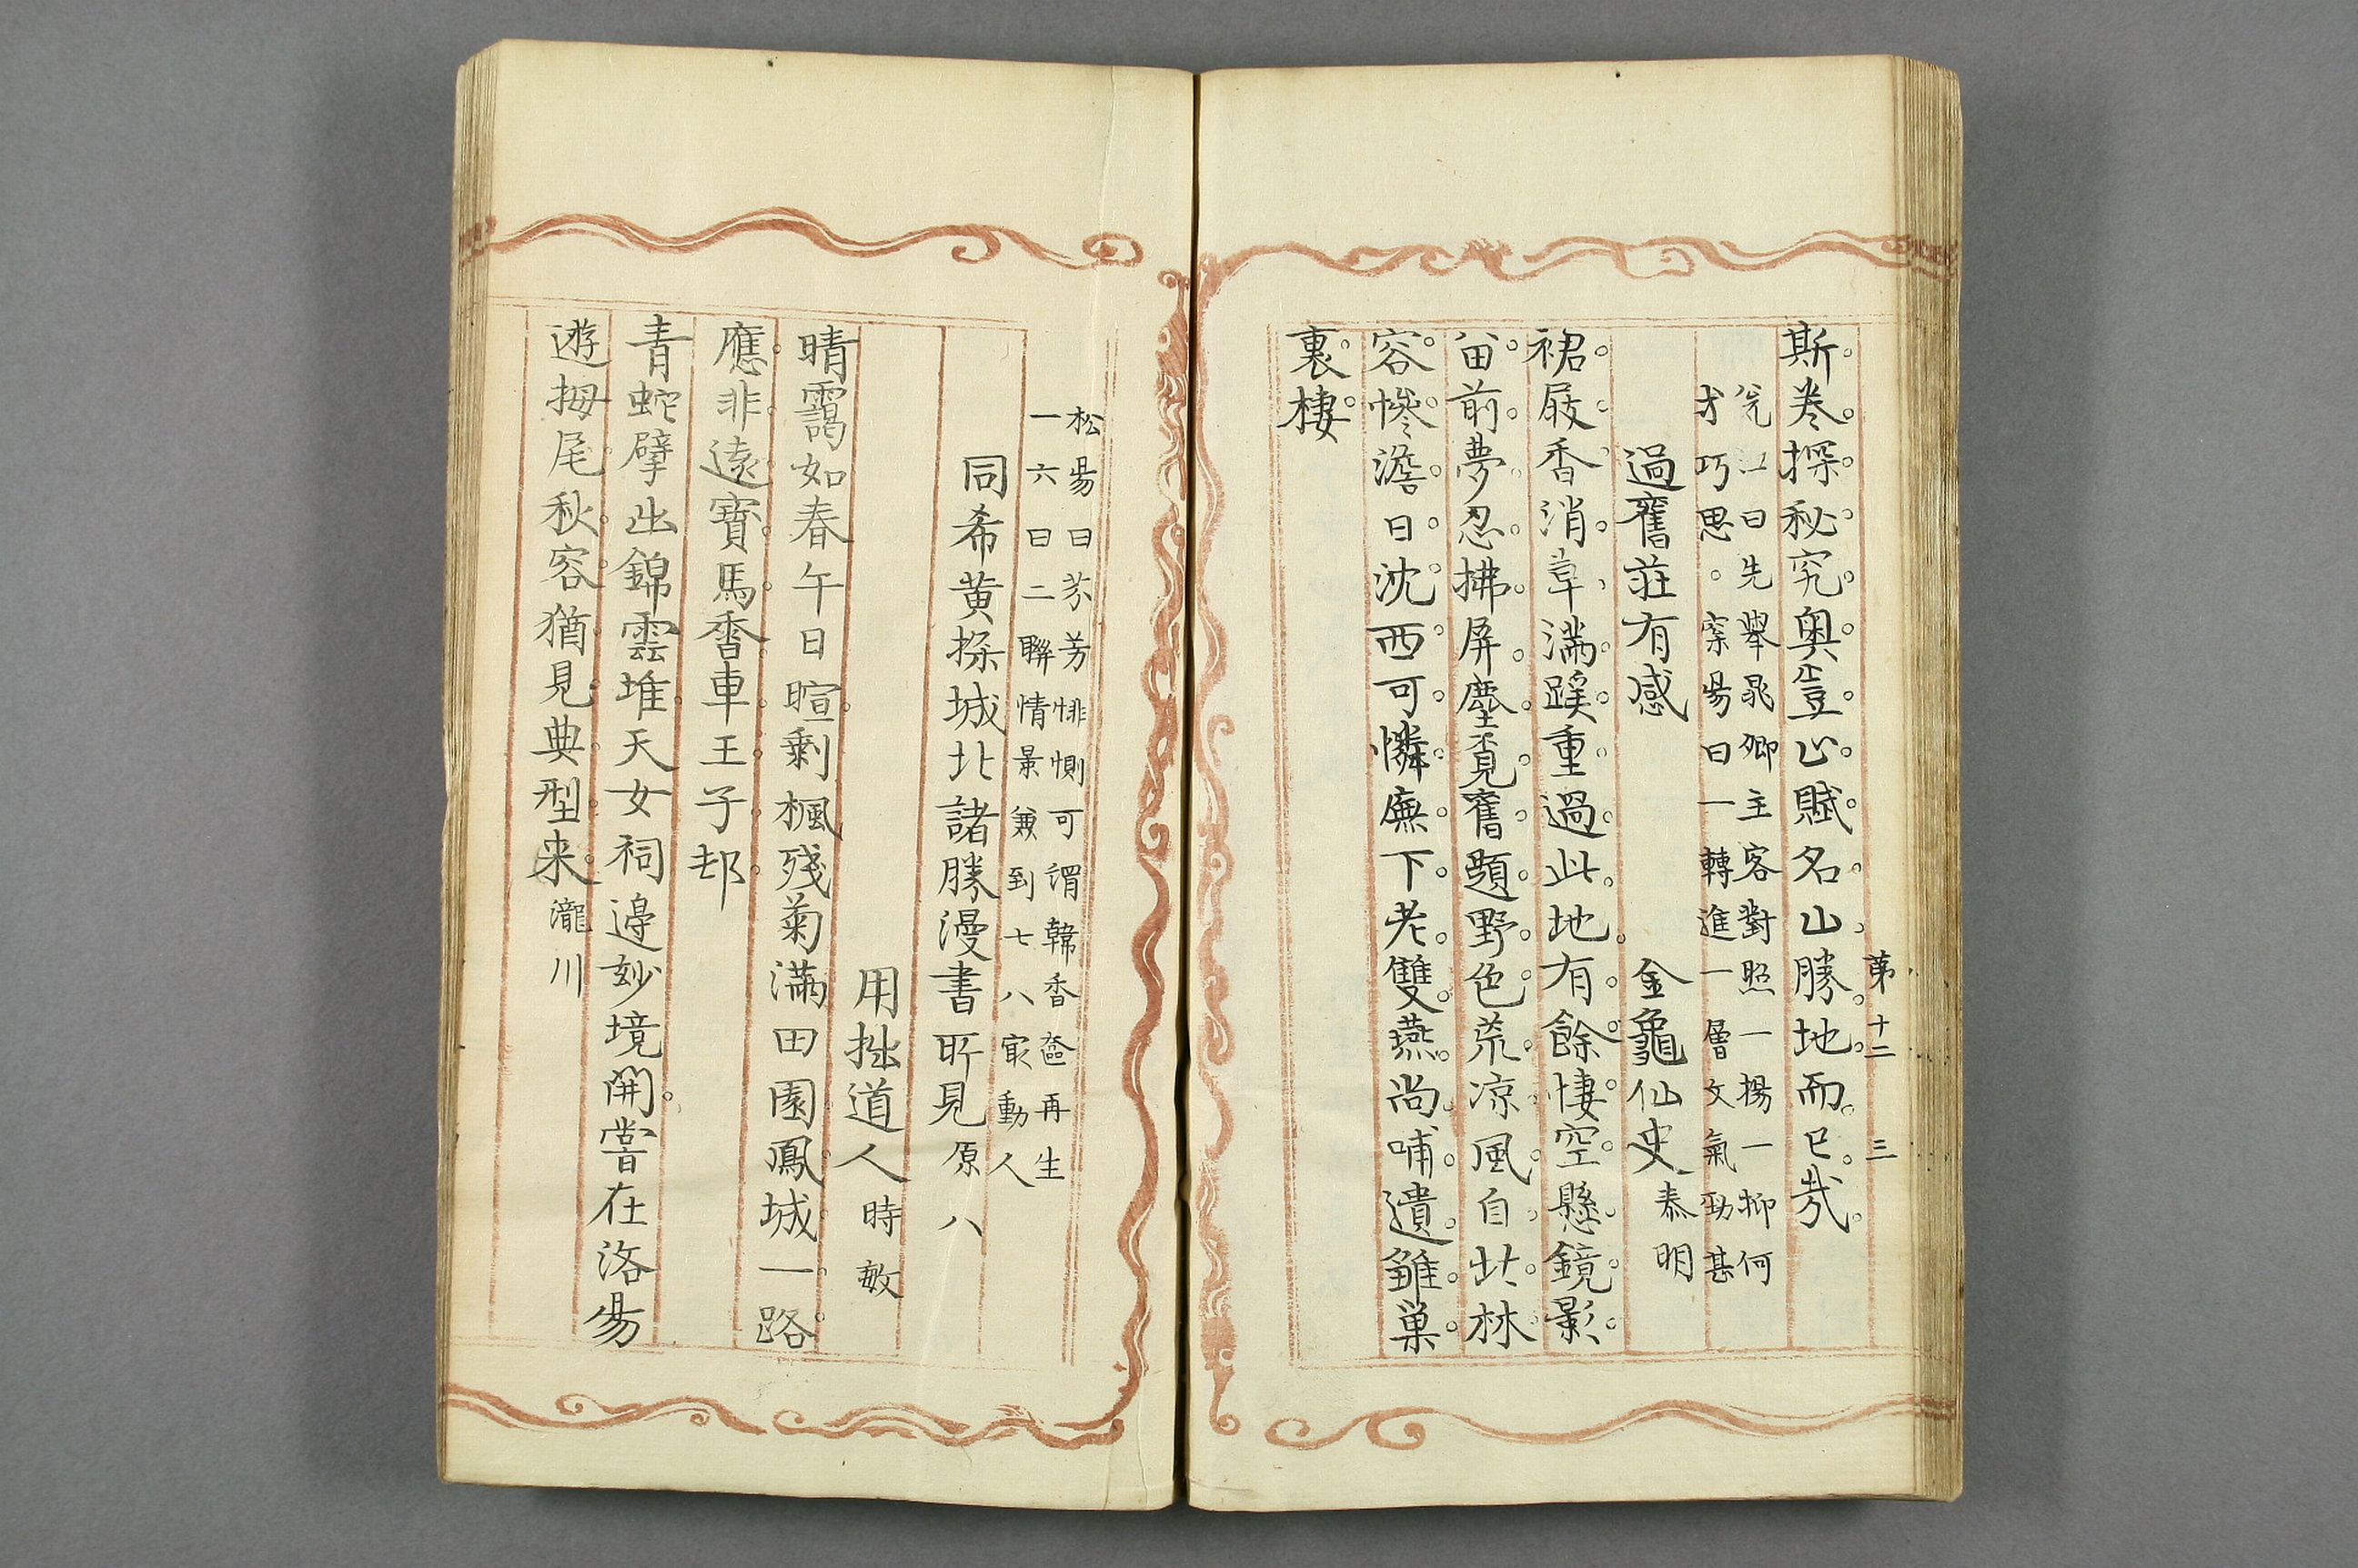 第十二 三
斯巻探秘究奥豈止賦名山勝地而已哉
洸江曰先舉晁卿主客對照一揚一抑何
才巧思。案昜曰一轉進一層文氣勁甚
過舊莊有感 金龜仙史 泰明
裙屐香消草滿蹊重過此地有餘悽空懸鏡影
留前夢忍拂屏塵覓舊題野色荒涼風自北林
容慘澹日沈西可憐廡下老雙燕尚哺遺雛巢
裏棲
松昜曰芬芳悱惻可謂韓香奩再生
一六曰二聯情景兼到七八㝡動人
同希黄探城北諸勝漫書所見 原八
用拙道人 時敏
晴靄如春午日暄剩楓殘菊滿田園鳳城一路
應非遠寳馬香車王子邨
青蛇擘出錦雲堆天女祠邉妙境開嘗在洛昜
遊拇尾秋容猶見典型来 瀧川